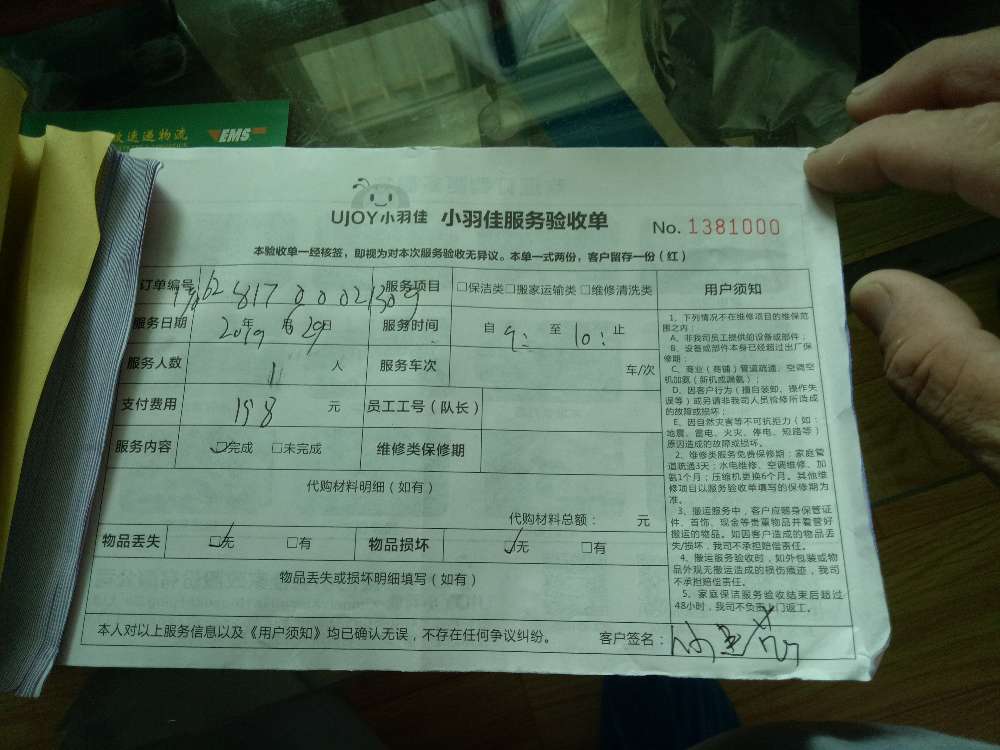 速递物流 EMS
UJOY小羽佳 小羽佳服务验收单 No. 1381000
本验收单一经核签，即视为对本次服务验收无异议。本单一式两份，客户留存一份（红）
订单编号 服务项目 □保洁类□搬家运输类□维修清洗类
服务日期 2019年 29日 服务时间 自 9: 至 10: 止
服务人数 1 人 服务车次 车/次
支付费用 198 元 员工工号（队长）
服务内容 ☑完成 □未完成 维修类保修期
代购材料明细（如有）
代购材料总额： 元
物品丢失 ☑无 □有 物品损坏 ☑无 □有
物品丢失或损坏明细填写（如有）
本人对以上服务信息以及《用户须知》均已确认无误，不存在任何争议纠纷。 客户签名：
用户须知
1、下列情况不在维修项目的维保范
围之内：
A、非我司员工提供的设备或部件；
B、设备或部件本身已经超过出厂保
修期；
C、商业（商铺）管道疏通、空调空
机加氨（新机或漏氨）；
D、因客户行为（擅自装卸、操作失
误等）或另请非我司人员检修所造成
的故障或损坏；
E、因自然灾害等不可抗拒力（如：
地震、雷电、火灾、停电、短路等）
原因造成的故障或损坏。
2、维修类服务免费保修期：家庭管
道疏通3天；水电维修、空调维修、加
氨1个月；压缩机更换6个月。其他维
修项目以服务验收单填写的保修期为
准。
3、搬运服务中，客户应随身保管证
件、首饰、现金等贵重物品并看管好
搬运的物品。如因客户造成的物品丢
失/损坏，我司不承担赔偿责任。
4、搬运服务验收时，如外包装或物
品外观无搬运造成的损伤痕迹，我司
不承担赔偿责任。
5、家庭保洁服务验收结束后超过
48小时，我司不负责上门返工。